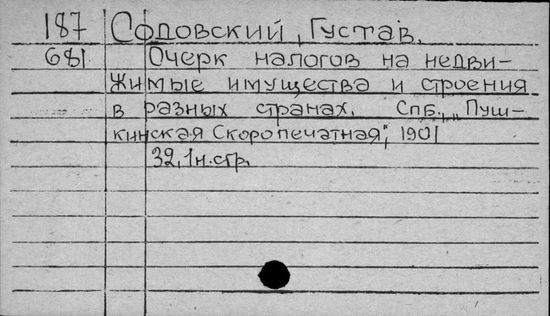 187 Содовский, Густав.
681 Очерк налогов на недви-
жимые имущества и строения
в разных странах. Спб., „Пуш-
кинская Скоропечатная", 1901
32, 1н. стр.